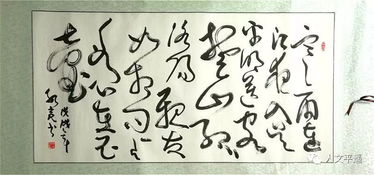 寒雨连
江夜入吴
平明送客
楚山孤
洛阳亲友
如相问一
片冰心在玉
壶
戊戌年
人文平通